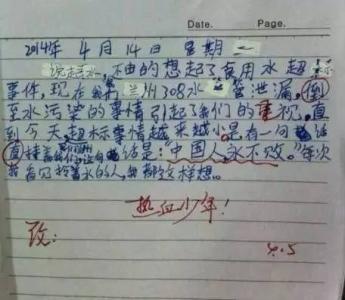 Date. Page.
2014年 4月14日 星期一
说起水,不由的想起了食用水超标
事件,现在 兰州308水管泄漏,倒
至水污染的事情引起了我们的重视,直
到今天超标事情越来越小是有一句话
直 着我们,这句话是:“中国人永不败。”每次
我看见 着水的人,我都这样想。
热血少年!
改: 4.5